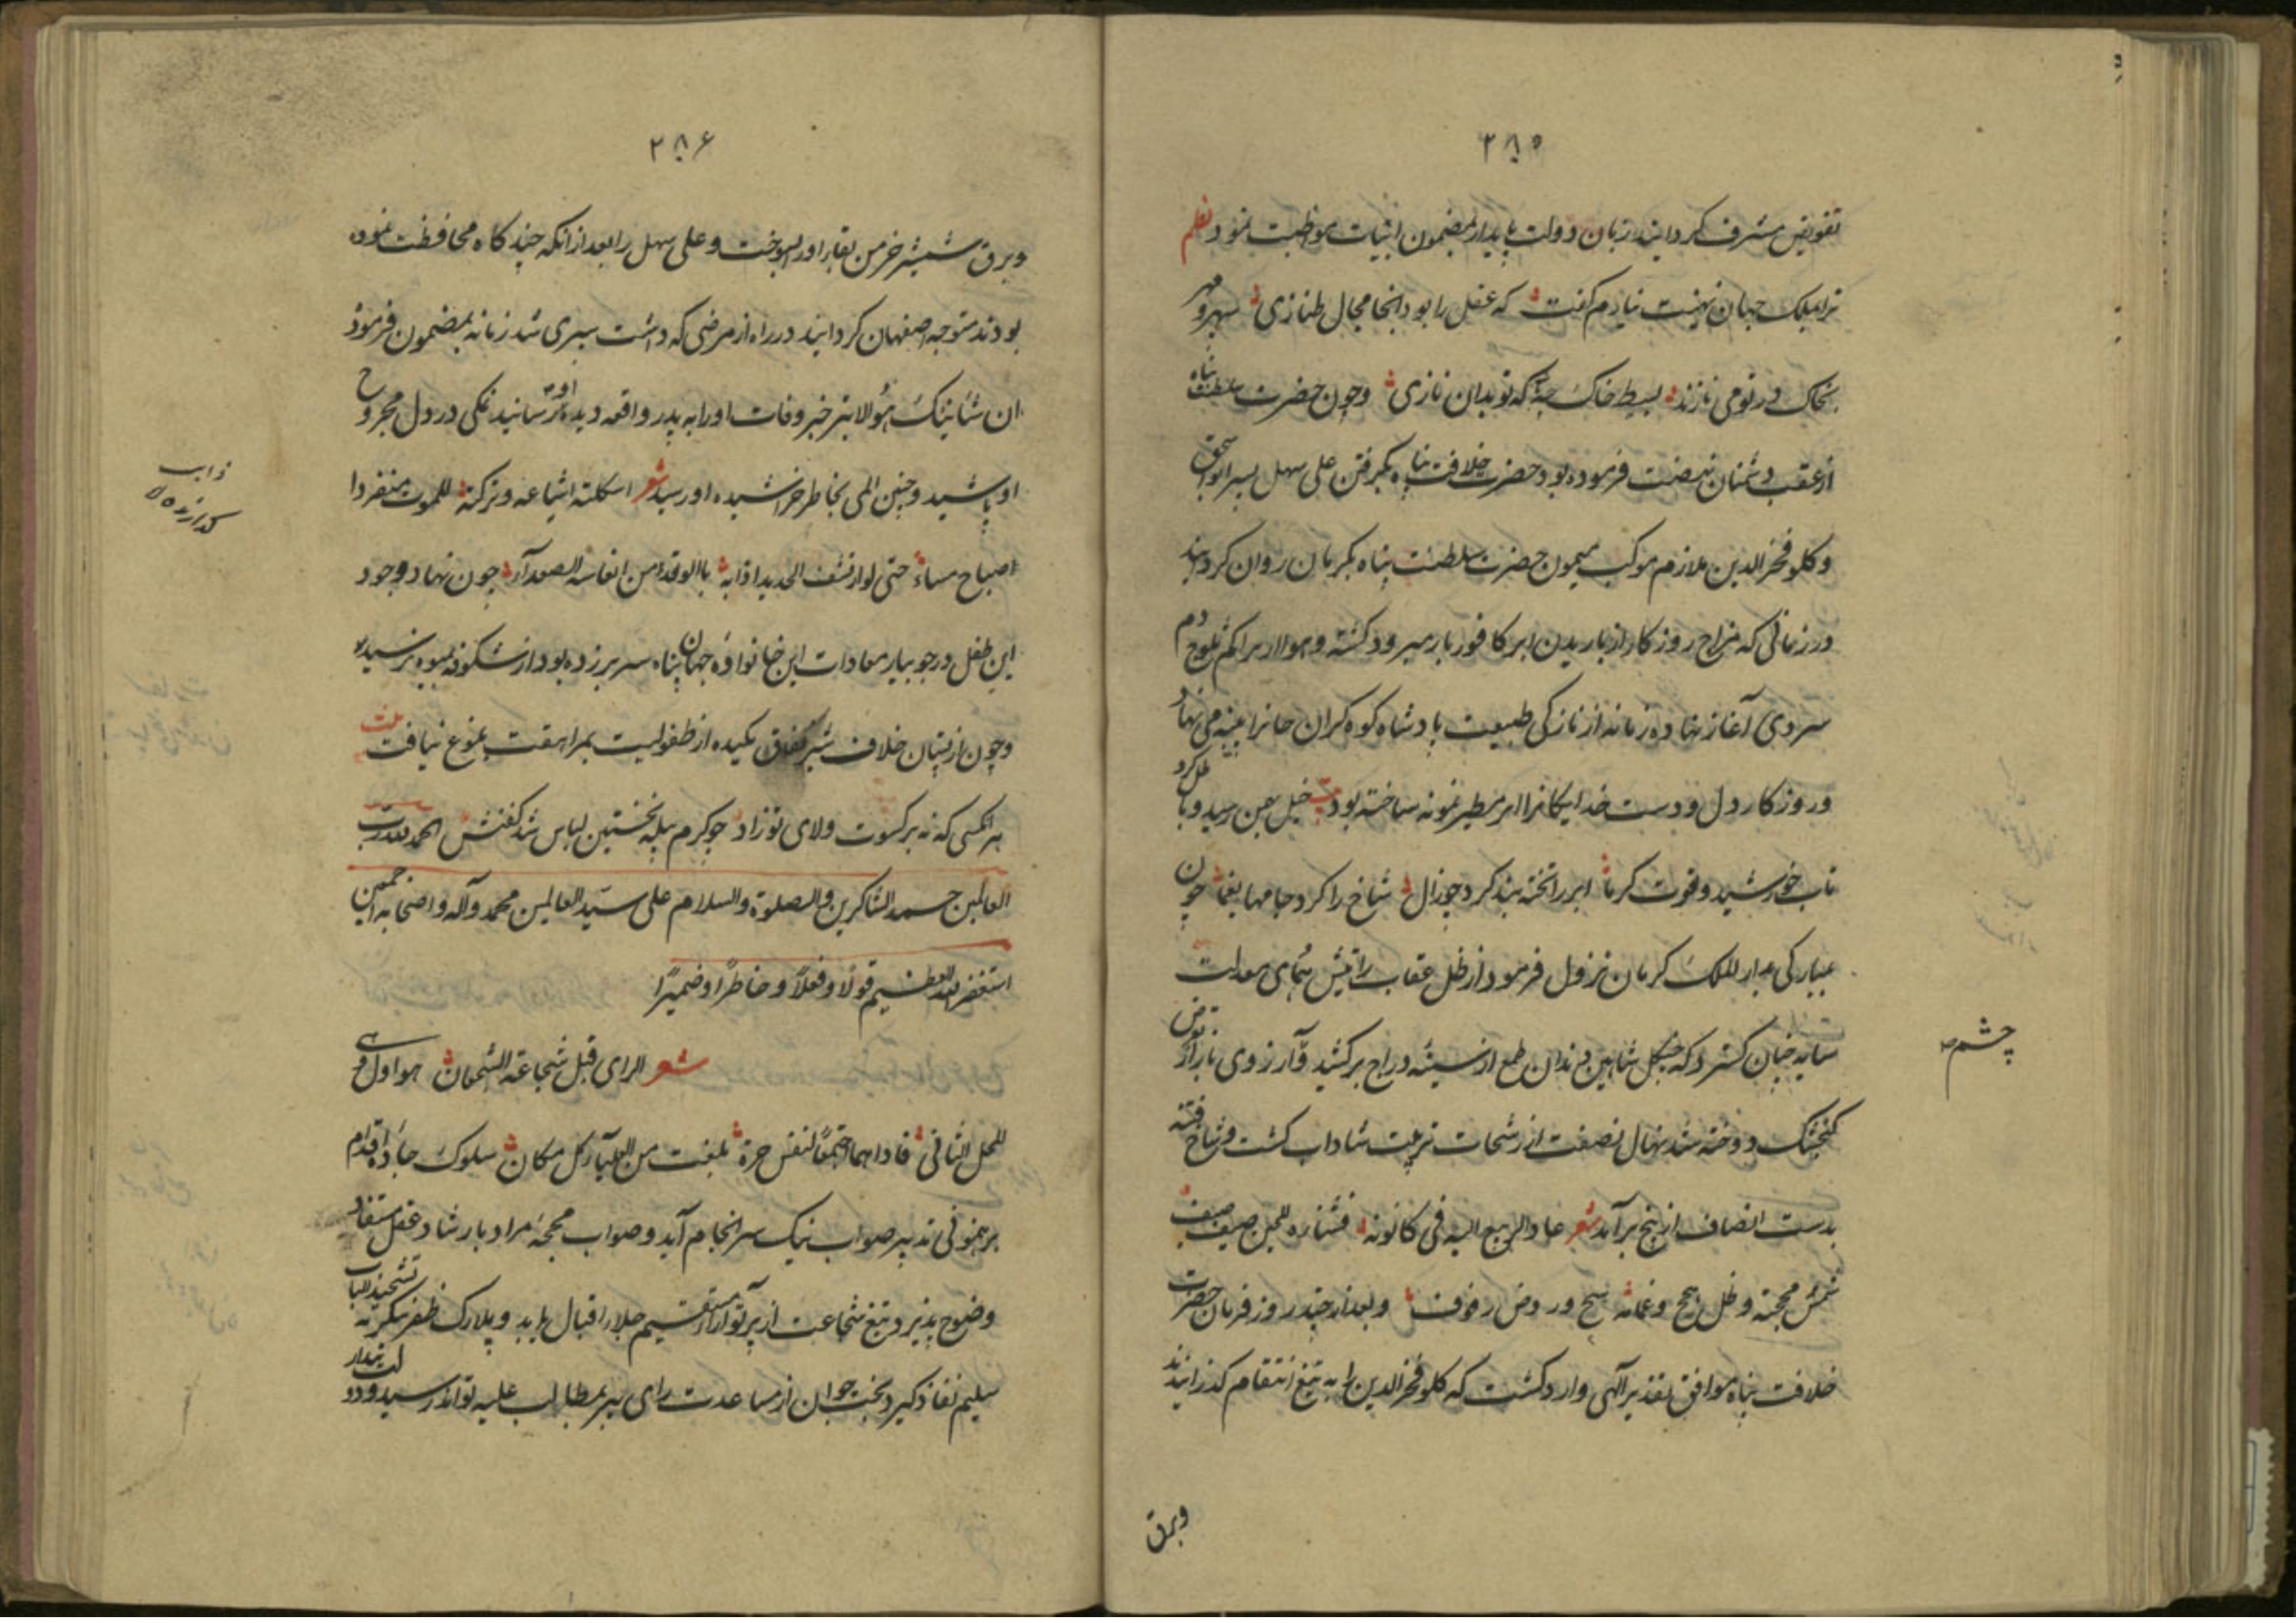 ۲۸۵
تفویض مشرف کردانیند زبان دولت پایدار بمضمون ابیات موظبت نمود نظم
ترا بملک جهان تهنیت نیارم کفت که عقل را بود انجا مجال طنازی سپهر و مهر
بخاک در تو می نازند بسیط خاک چه که تو بدان نازی و چون حضرت سلطنت پناه
از عقب دشمنان نهضت فرموده بود حضرت خلافت پناه بکرفتن علی سهل پسر ابواسحق
و کلو فخر الدین ملازم موکب میمون حضرت سلطنت پناه بکرمان روان کردیند
در زمانی که مزاج روزکار از باریدن ابر کافور بار میرود کشته و هوا از تراکم ثلوج دم
سردی آغاز نهاده زمانه از نازکی طبیعت پادشاه کوه کران جانرا پنبه می نهاد
و روزکار دل و دست خدایکانرا ابر مطیر نمونه ساخته بود خیل بهمن رسید و باطل کرد
تاب خورشید و قوت کرما ابر را تخته بند کرد چو زال شاخ را کرد جامها یغما چون
بمبارکی بدار الملک کرمان نزول فرمود از ظل عقاب رایتش همای معدلت
سایه چنان کسترد که چنکل شاهین دندان طمع از سینه دراج برکشید و آرزوی باز از تعرض
کنجشک دوخته شد نهال نصفت از رشحات تربیت شاداب کشت و شاخ فتنه
بدست انصاف از بیخ برآمد شعر عاد الربیع الیه فی کانونه
و بعد از چند روز فرمان حضرت
خلافت پناه موافق تقدیر آلهی وارد کشت که کلو فخر الدین را به تیغ انتقام کذرانیدند
چشم
وبرق
۲۸۶
و برق شمشیر خرمن بقای او را بسوخت و علی سهل را بعد از انکه چند کاه محافظت نموده
بودند متوجه اصفهان کردانیند در راه از مرضی که داشت سپری شد زمانه بمضمون فرموده
ان شانئک هو الابتر خبر وفات او را به پدر واقعه دیده او رسانید نمکی در دل مجروح
او پاشید و چنین المی بخاطر خراشیده او رسید شعر اسکلته اشیاعه و ترکته للموت منفردا
اصباح مساء حتی لو ارتشف الحدید اذابه باالوقد من انفاسه الصعدآء چون نهاد وجود
این طفل در جویبار معادات این خانواده جهان پناه سر بر زده بود از شکوفه بمیوه نرسید
و چون از پستان خلاف شیر نفاق مکیده از طفولیت بمراهقت بلوغ نیافت بیت
هر انکسی که نه بر کسوت ولای تو زاد چو کرم پیله نخستین لباس شد کفنش الحمد لله رب
العالمین حمد الشاکرین والصلوة والسلام علی سید العالمین محمد وآله واصحابه اجمعین
استغفر الله العظیم قولا وفعلا وخاطرا وضمیرا
شعر الرای قبل شجاعة الشجعان هو اول وهی
المحل الثانی فاذا هما اجتمعا لنفس حرة بلغت من العلیآء کل مکان سلوک جاده اقدام
برهنمونی تدبیر صواب نیک سرانجام آید و صواب محجه مراد بارشاد عقل مستفاد
وضوح پذیرد تیغ شجاعت از پرتو آراء مستقیم جلاء اقبال یابد و پلارک ظفر بی تشحیذ الباب
سلیم نفاذ کیرد بخت جوان از مساعدت رای پیر بمطالب علیه تواند رسید و دولت بیدار